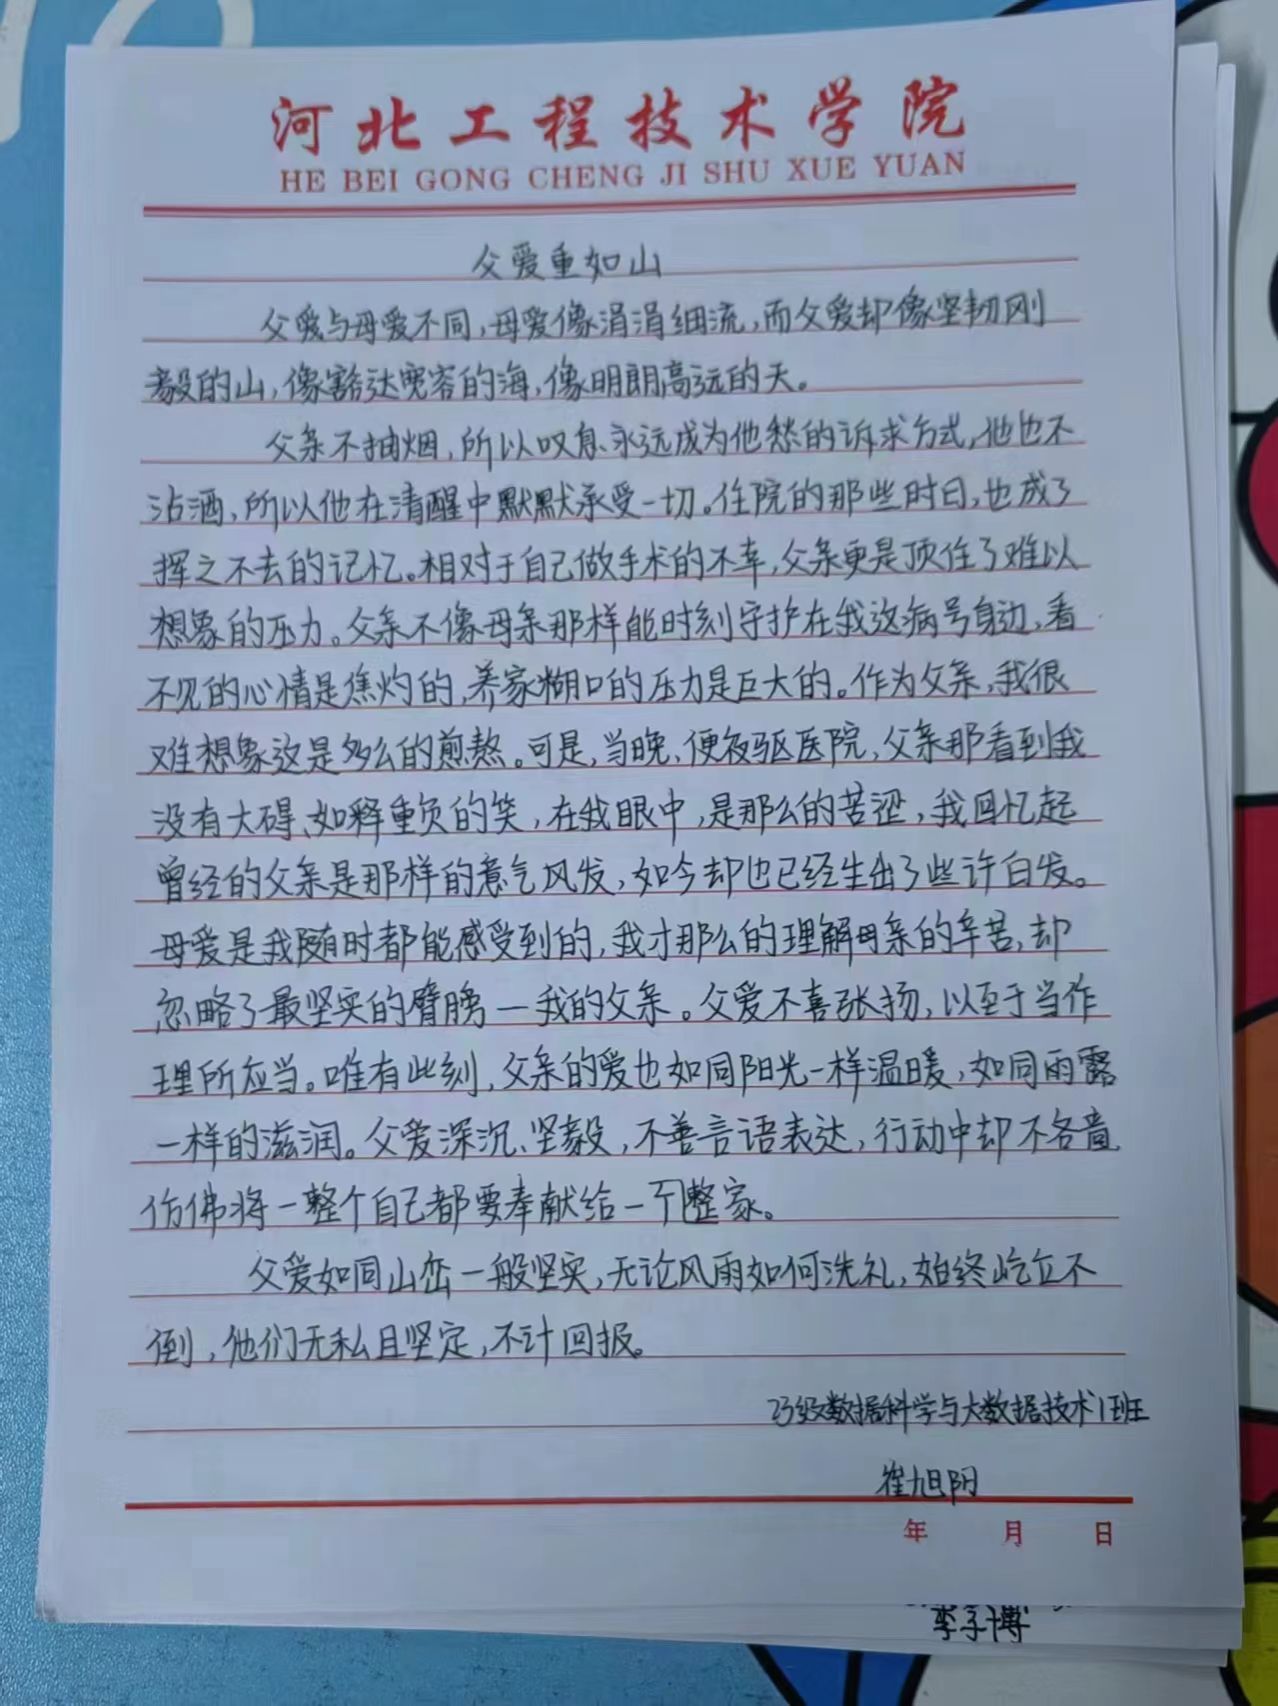 河北工程技术学院
HE BEI GONG CHENG JI SHU XUE YUAN
父爱重如山
父爱与母爱不同,母爱像涓涓细流,而父爱却像坚韧刚
毅的山,像豁达宽容的海,像明朗高远的天。
父亲不抽烟,所以叹息、永远成为他愁的诉求方式,他也不
沾酒,所以他在清醒中默默承受一切。住院的那些时日,也成了
挥之不去的记忆。相对于自己做手术的不幸,父亲更是顶住了难以
想象的压力。父亲不像母亲那样能时刻守护在我这病号身边,看
不见的心情是焦灼的,养家糊口的压力是巨大的。作为父亲,我很
难想象这是多么的煎熬。可是,当晚、便夜驱医院,父亲那看到我
没有大碍、如释重负的笑,在我眼中,是那么的苦涩,我回忆起
曾经的父亲是那样的意气风发,如今却也已经生出了些许白发。
母爱是我随时都能感受到的,我才那么的理解母亲的辛苦,却
忽略了最坚实的臂膀一我的父亲。父爱不喜张扬,以至于当作
理所应当。唯有此刻,父亲的爱也如同阳光一样温暖,如同雨露
一样的滋润。父爱深沉、坚毅,不善言语表达,行动中却不吝啬,
仿佛将一整个自己都要奉献给一个整家。
父爱如同山峦一般坚实,无论风雨如何洗礼,始终屹立不
倒,他们无私且坚定,不计回报。
23级数据科学与大数据技术1班
崔旭阳
年 月 日
李子博